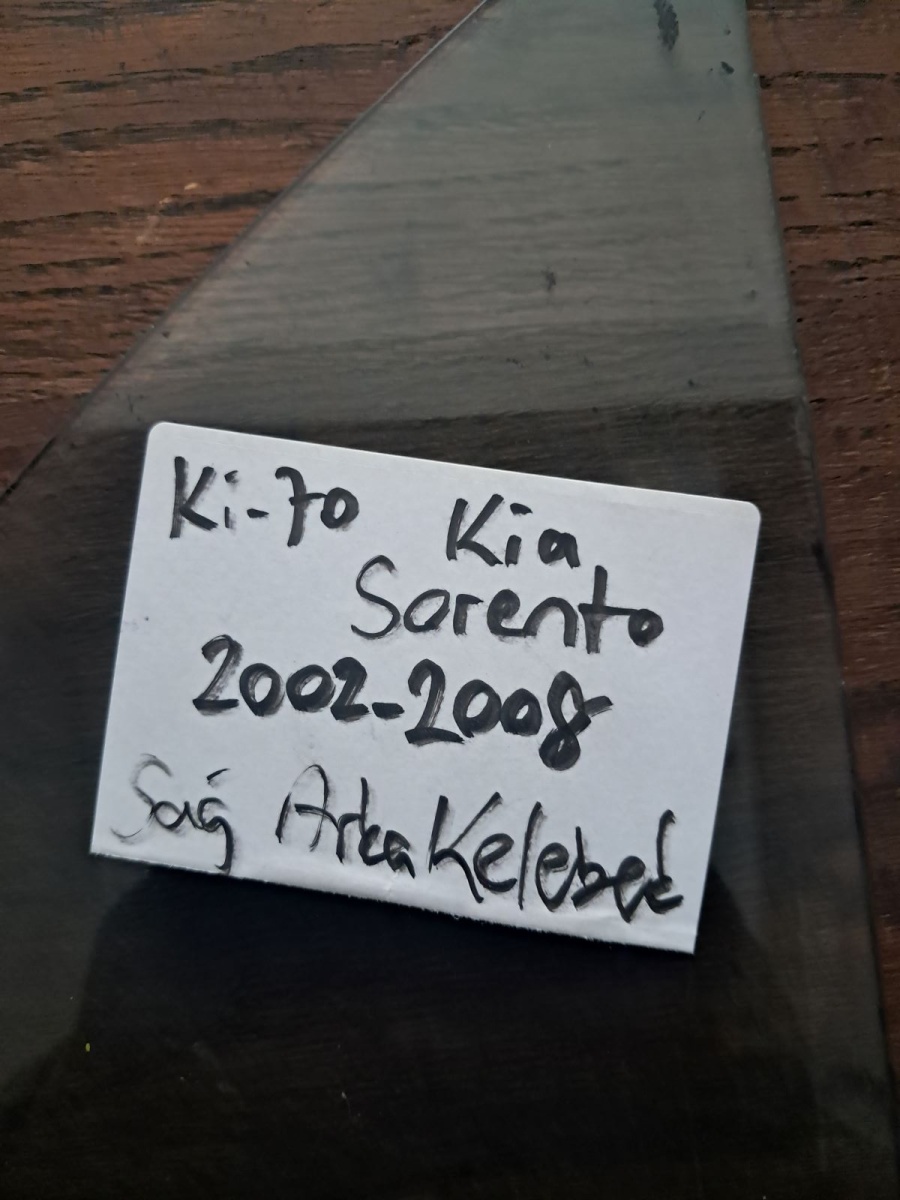 Ki-70 Kia
Sorento
2002-2008
Sağ Arka Kelebek